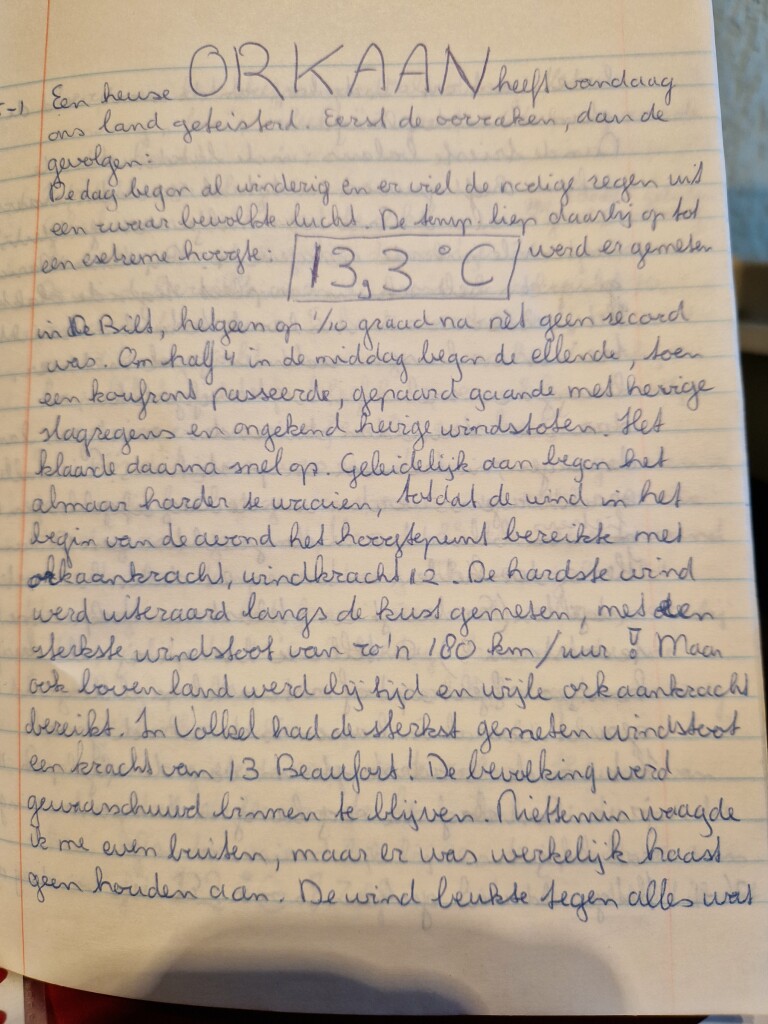 5-1 Een heuse ORKAAN heeft vandaag
ons land geteisterd. Eerst de oorzaken, dan de
gevolgen:
De dag begon al winderig en er viel de nodige regen uit
een zwaar bewolkte lucht. De temp. liep daarbij op tot
een extreme hoogte: 13,3 °C werd er gemeten
in De Bilt, hetgeen op 1/10 graad na nèt geen record
was. Om half 4 in de middag begon de ellende, toen
een koufront passeerde, gepaard gaande met hevige
slagregens en ongekend hevige windstoten. Het
klaarde daarna snel op. Geleidelijk aan begon het
almaar harder te waaien, totdat de wind in het
begin van de avond het hoogtepunt bereikte met
orkaankracht, windkracht 12. De hardste wind
werd uiteraard langs de kust gemeten, met een
sterkste windstoot van zo'n 180 km/uur! Maar
ook boven land werd bij tijd en wijle orkaankracht
bereikt. In Volkel had de sterkst gemeten windstoot
een kracht van 13 Beaufort! De bevolking werd
gewaarschuwd binnen te blijven. Niettemin waagde
ik me even buiten, maar er was werkelijk haast
geen houden aan. De wind beukte tegen alles wat